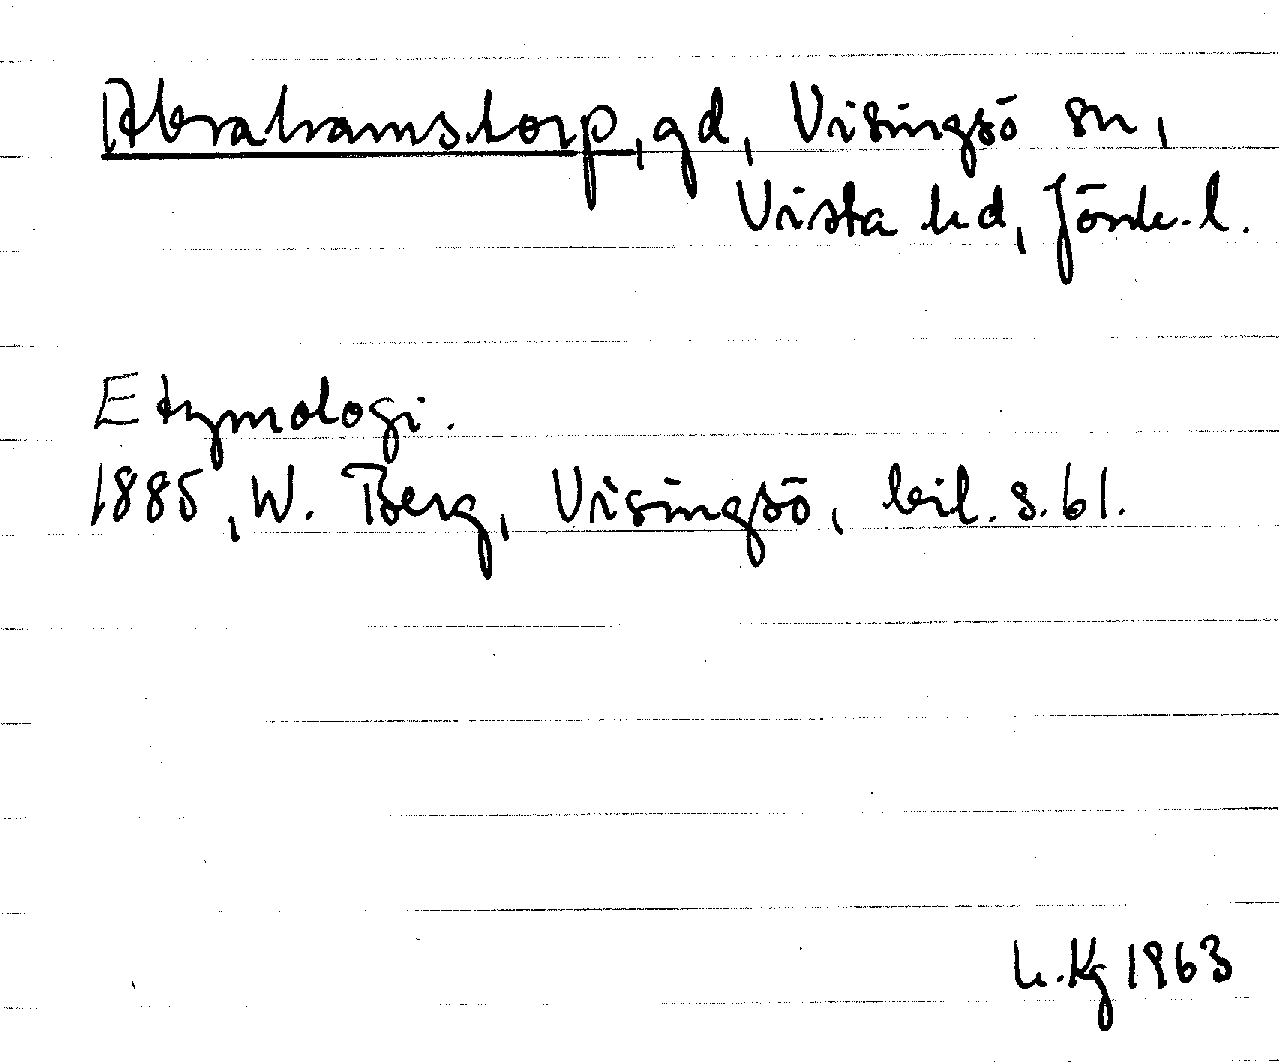 Abrahamstorp, gd, Visingsö sn,
Vista hd, Jönk. l.
Etymologi.
1885, W. Berg, Visingsö, bil. s. 61.
1963